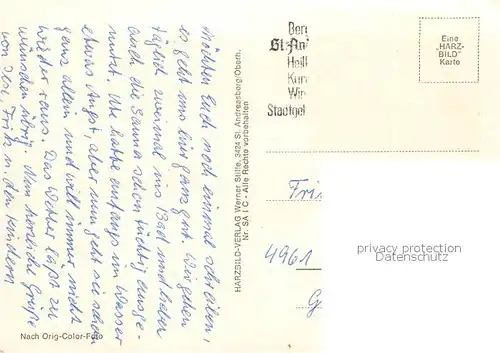 Möchten Euch noch einmal schreiben,
es geht uns hier ganz gut. Wir gehen
täglich zweimal ins Bad und haben
auch die Sauna schon tüchtig ausge-
nutzt. Ute hatte anfangs im Wasser
etwas Angst, aber nun geht sie schon
ganz allein und will immer nicht
wieder raus. Das Wetter läßt zu
wünschen übrig. Nun herzliche Grüße
von Fritz u. den Kindern
Nach Orig-Color-Foto
HARZBILD-VERLAG Werner Stille, 3424 St. Andreasberg/Oberh.
Nr. SA i C - Alle Rechte vorbehalten
Ber
St. An
Heil
Kur
Win
Stadtgel
Eine
„HARZ-
BILD"
Karte
Fri
4961
G
privacy protection
Datenschutz